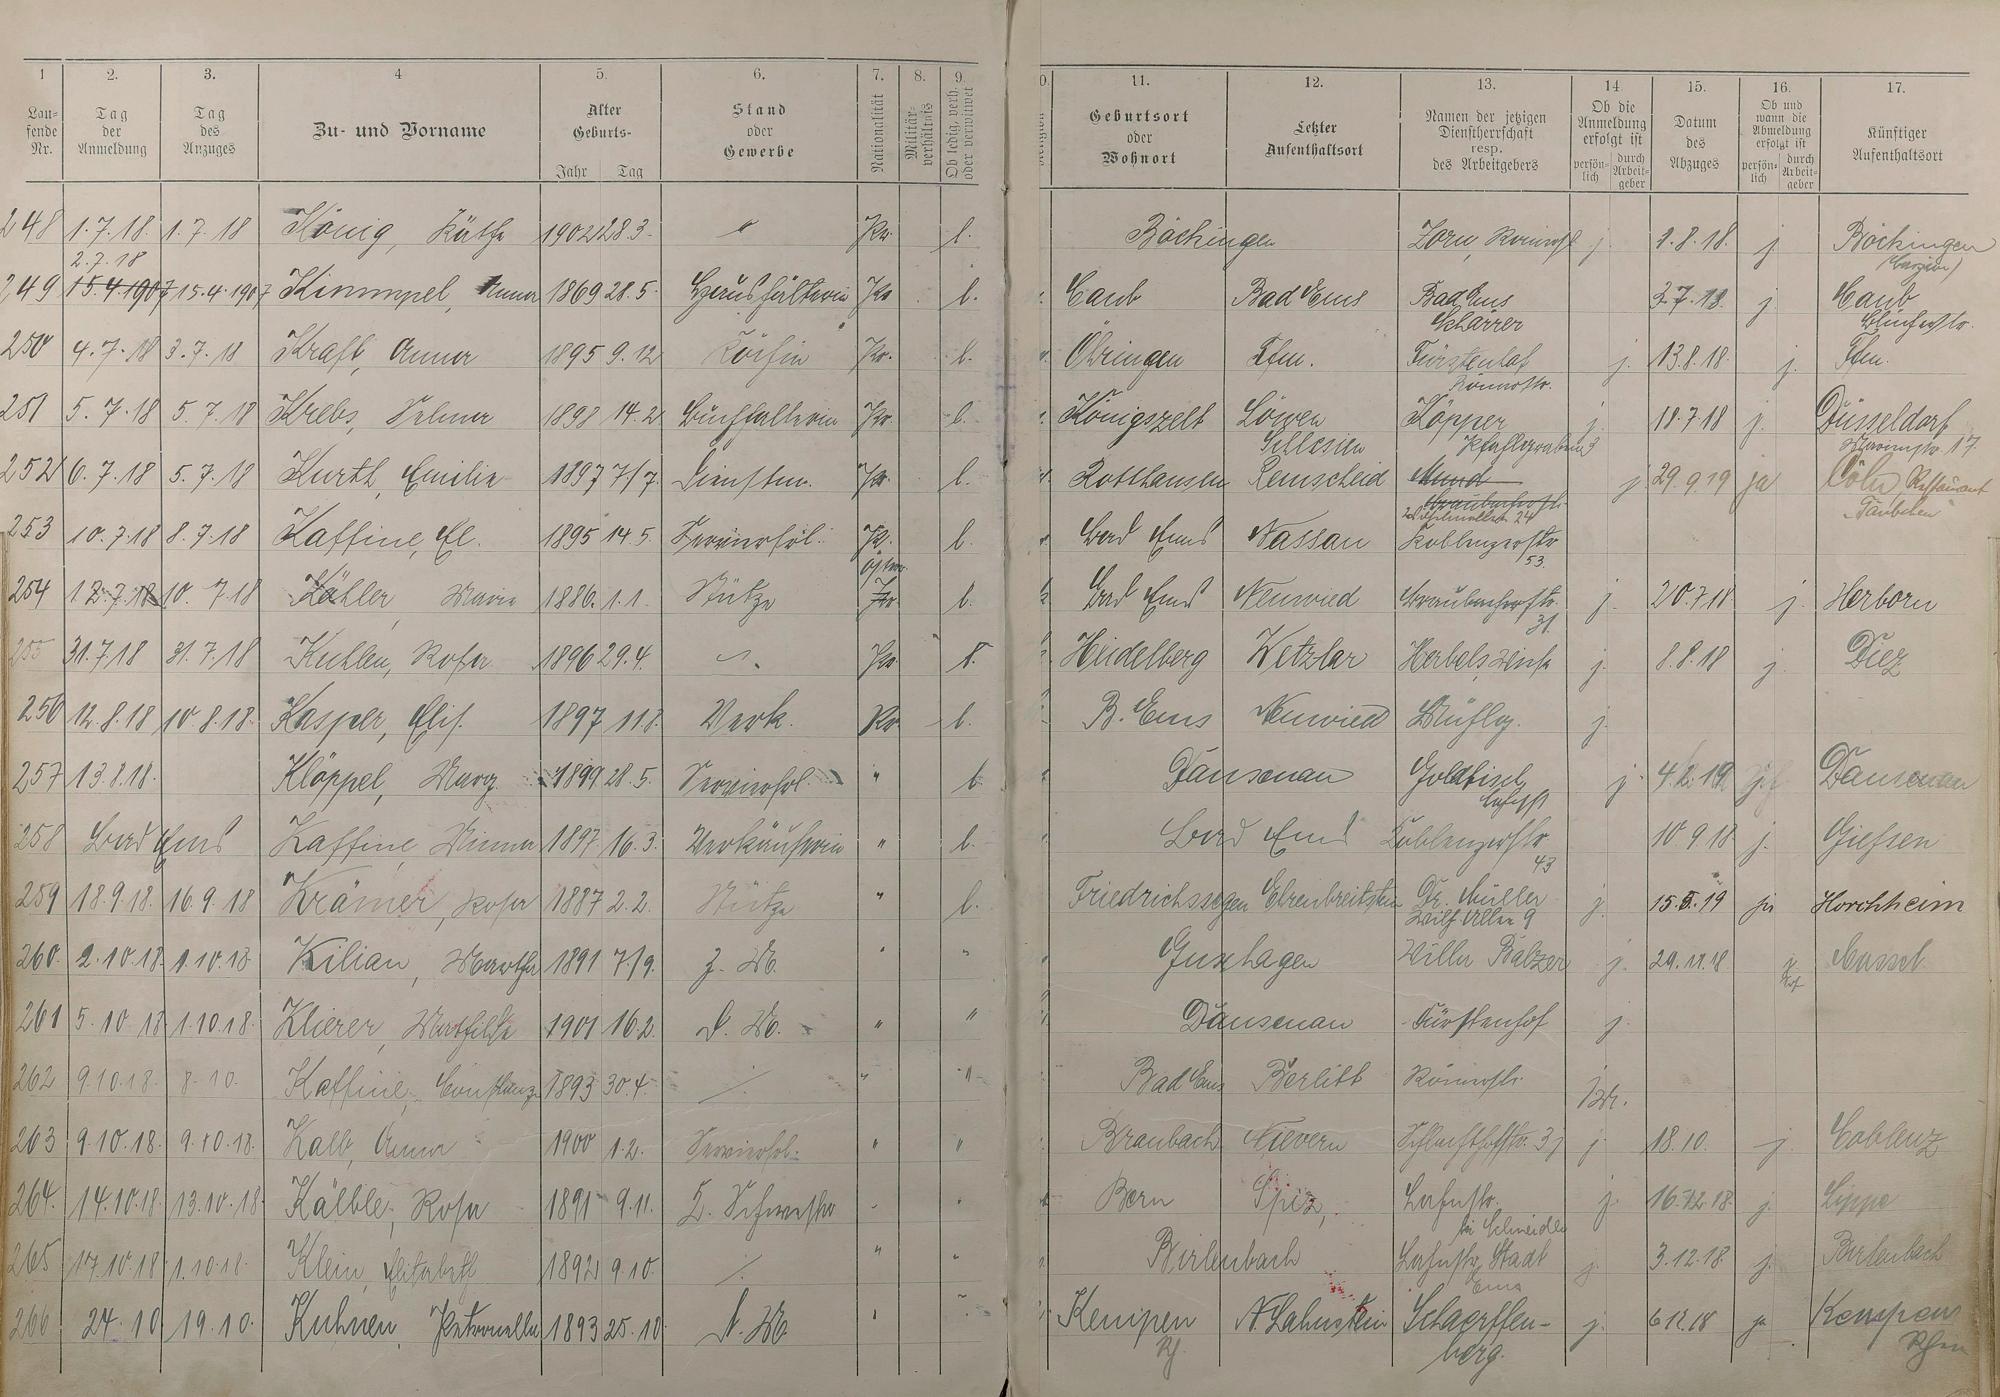 1 2. 3. 4 5. 6. 7. 8. 9. 0. 11. 12. 13. 14. 15. 16. 17.
Lau- fende Nr. Tag der Anmeldung Tag des Anzuges Zu- und Vorname Alter Geburts- Jahr Tag Stand oder Gewerbe Nationalität Militär- verhältnis Ob ledig, verh. oder verwitwet Geburtsort oder Wohnort Letzter Aufenthaltsort Namen der jetzigen Dienstherrschaft resp. des Arbeitgebers Ob die Anmeldung erfolgt ist persön- lich durch Arbeit- geber Datum des Abzuges Ob und wann die Abmeldung erfolgt ist persön- lich durch Arbeit- geber Künftiger Aufenthaltsort
248 1.7.18. 1.7.18 König, Käthe 1902 28.3. " Pr. l. Böchingen Zorn, Römerstr j. 1.8.18. j. Böchingen
2.7.18
249 15.4.1907 15.4.1907 Kimmpel, Anna 1869 28.5. Haushälterin Pr l. Caub Bad Ems Bad Ems 3.7.18. j. Caub
Schärrer Blücherstr.
250 4.7.18 3.7.18 Kraft, Anna 1895 9.12 Köchin Pr. l. Öhringen Ffm. Fürstenhof j. 13.8.18. j. Ffm.
Römerstr.
251 5.7.18 5.7.18 Krebs, Selma 1898 14.2 Buchhalterin Pr. l. Königszelt Löwen Köpper j. 18.7.18 j. Düsseldorf
Schlesien Pfahlgraben 3 17.
252 6.7.18 5.7.18 Kurth, Emilie 1897 7/7. Dienstm. Pr. l. Rotthausen Remscheid Mund j 29.9.19 ja Cöln, Restaurant
Braubacherstr. "Täubchen"
Wilhelmsallee 24
253 10.7.18 8.7.18 Kaffine, El. 1895 14.5. Servierfrl. Pr. l. Bad Ems Nassau Koblenzerstr
53.
254 12.7.18 10.7.18 Köhler, Marie 1886. 1.1. Stütze Pr l. Bad Ems Neuwied Braubacherstr. j. 20.7.18 j. Herborn
31.
255 31.7.18 31.7.18 Kuhlen, Rosa 1896 29.4. Pr. l. Heidelberg Wetzlar j. 8.8.18 j. Diez
256 12.8.18 10.8.18. Kasper, Elis. 1897 11.8. Verk. Pr l. B. Ems Neuwied j.
257 13.8.18. Klöppel, Marg. 1899 28.5. Servierfrl. " l. Dausenau Goldfisch j. Dausenau
Lahnstr
258 Bad Ems Kaffine, Minna 1897. 16.3. Verkäuferin " l. Bad Ems Koblenzerstr 10.9.18 j. Gießen
43
259 18.9.18. 16.9.18 Krämer, Rosa 1887 2.2. Stütze " l. Friedrichssegen Ehrenbreitstein Dr. Müller j. 15.5.19 ja Horchheim
Wilh Allee 9
260. 2.10.18. 1.10.18. Kilian, Martha 1891 7/9. Z. M. " " Guxhagen Villa Balzer j. 29.11.18 j. Cassel
261 5.10.18 1.10.18. Klierer, Mathilde 1901 16.2. D. M. " " Dausenau Fürstenhof j.
262 9.10.18. 8.10. Kaffine, Constanze 1893 30.4. " " Bad Ems Berlitt Römerstr. j
263 9.10.18. 9.10.18. Kalb, Anna 1900 1.2. Servierfrl. " " Braubach Nievern Schlachthofstr. 3 j j. 18.10. j. Coblenz
264. 14.10.18. 13.10.18. Kälble, Rosa 1891 9.11. L. Schwester " " Bern Spiz, Lahnstr. j. 16.12.18. j. Lippe
bei Schneider
265 17.10.18 1.10.18. Klein, Elisabeth 1892 9.10. " " Birlenbach Lahnstr, Stadt j. 3.12.18. j. Birlenbach
Ems
266 24.10 19.10. Kuhnen, Petronella 1893 25.10. D. M. " " Kempen N. Lahnstein Schaerffen- j. 6.12.18 ja Kempen
Rh. berg. Rhein